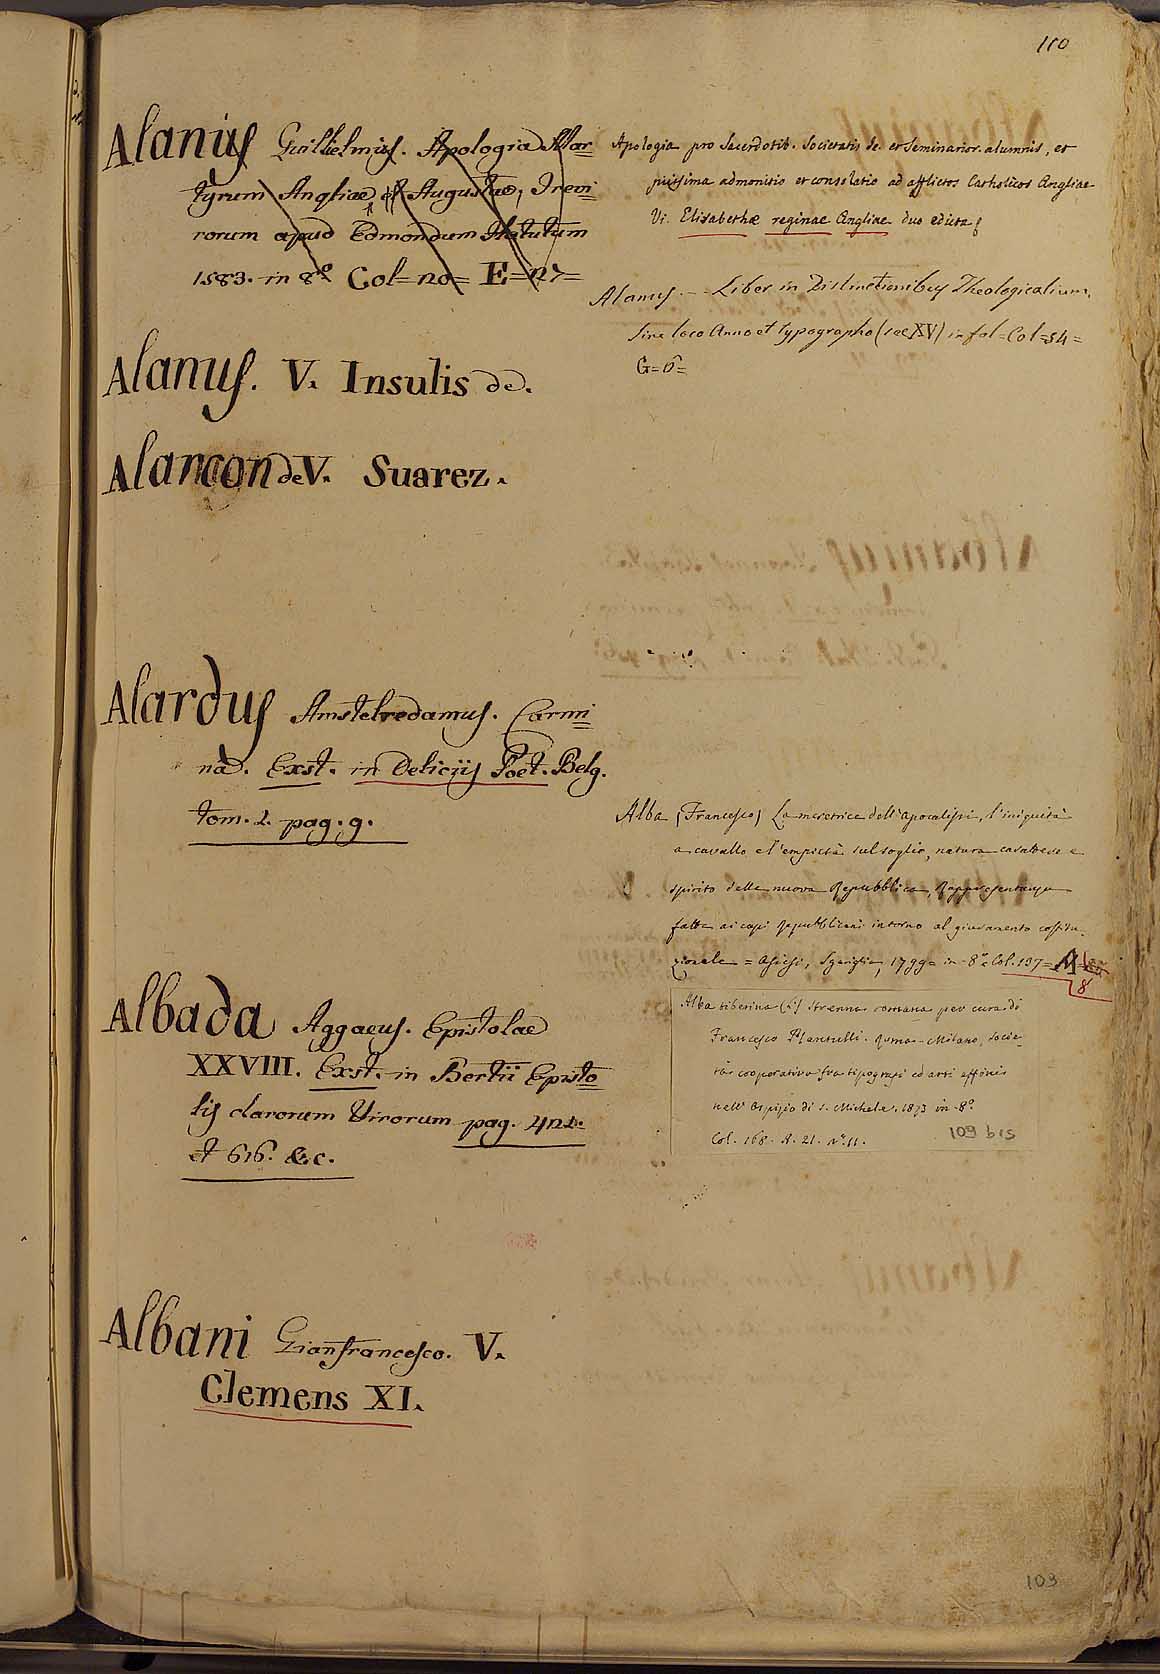 110
Alanus Guillielmus. Apologia Mar=
tyrum Angliae, et Augustae, Trevi=
rorum apud Edmondum Hatutum
1583. in 8º Col=20= E=27=
Apologia pro Sacerdotib. Societatis Je. et Seminarior. alumnis, et
piissima admonitio et consolatio ad afflictos Catholicos Angliae
Vi. Elisabethae reginae Angliae duo edicta
Alanus - - Liber in Distinctionibus Theologicalium,
Sine loco Anno et typographo (saec XV) in fol=Col=54=
G=6=
Alanus. V. Insulis de.
Alarcon de V. Suarez.
Alardus Amstelredamus. Carmi=
na. Exst. in Deliciis Poet. Belg.
tom. 1. pag. 9.
Alba (Francesco) La meretrice dell'apocalissi, l'iniquità
a cavallo e l'empietà sul soglio, natura carattere e
spirito della nuova Repubblica, Rappresentanza
fatta ai capi repubblicani intorno al giuramento costitu=
zionale = Assisi, Sgariglia, 1799= in-8º Col. 137= M
8
Albada Aggaeus. Epistolae
XXVIII. Exst. in Bertii Episto=
lis clarorum Virorum pag. 421.
et 616. &c.
Alba tiberina (L') Strenna romana per cura di
Francesco Plantulli. Roma-Milano, socie=
tà cooperativa fra tipografi ed arti affini
nell'Ospizio di S. Michele. 1873 in-8º.
Col. 168. A. 21. Nº. 11.
109 bis
Albani Gianfrancesco. V.
Clemens XI.
103